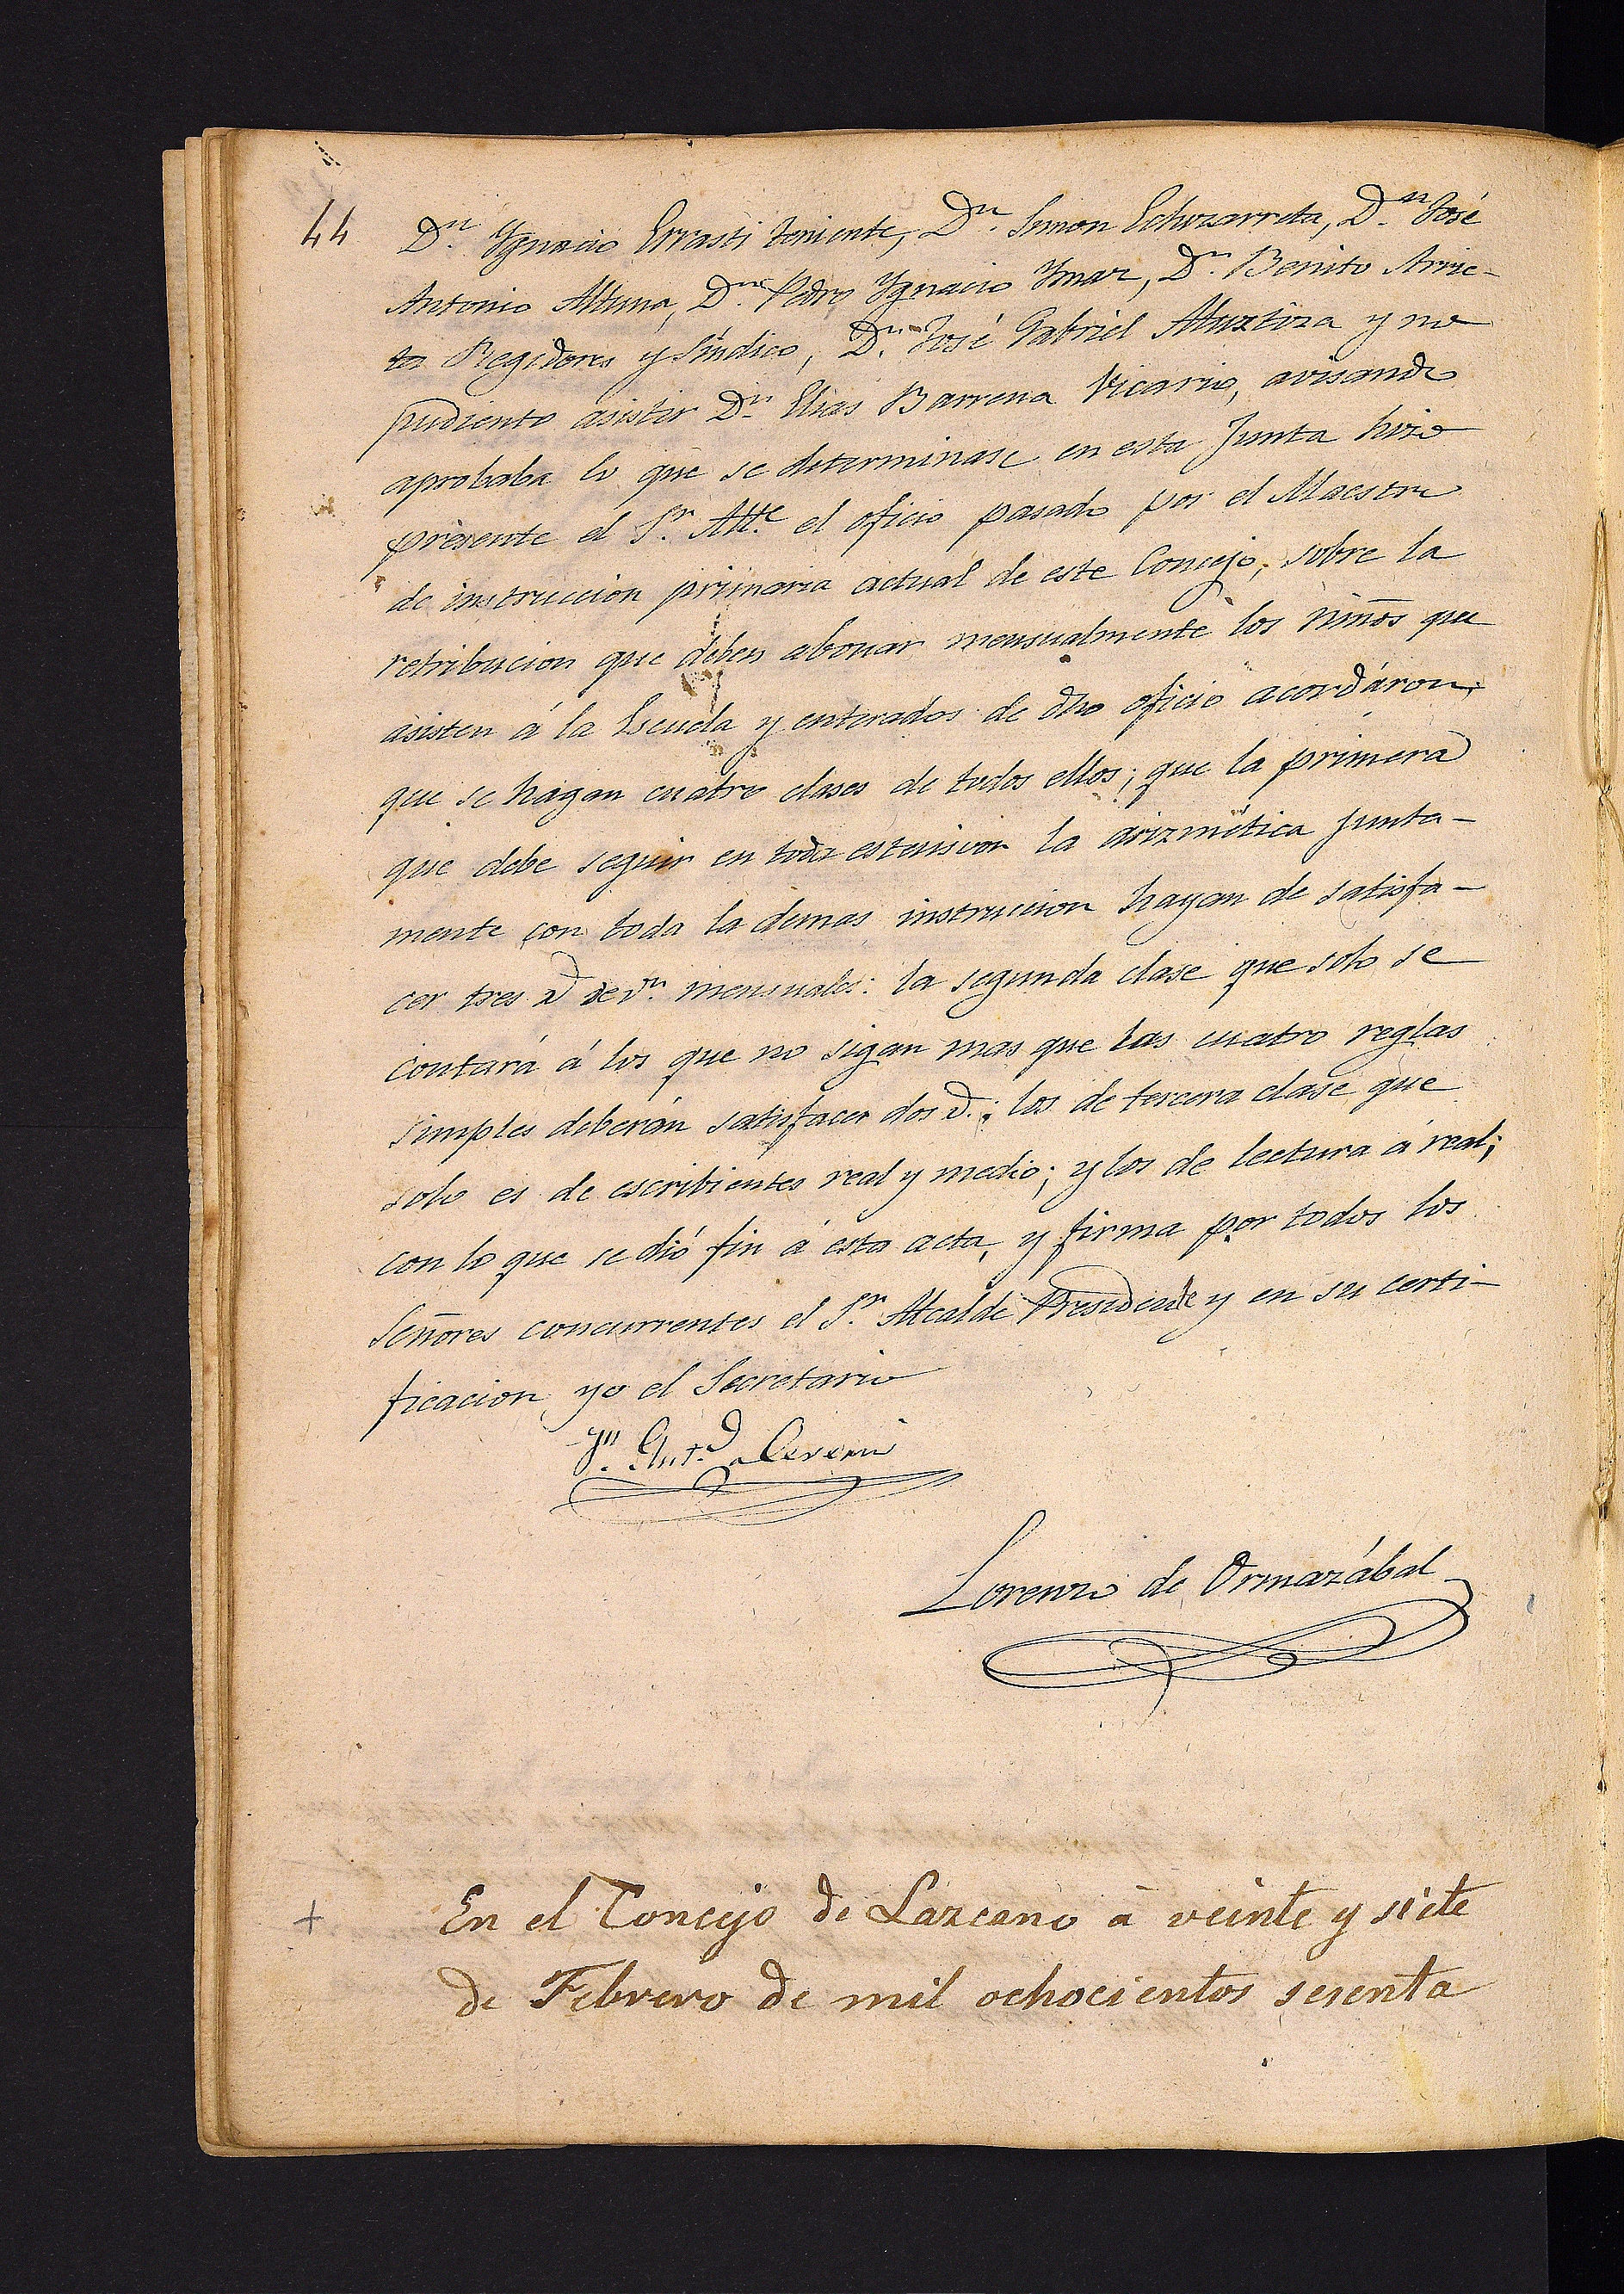 44
Dn. Ygnacio Errasti teniente, Dn. Simon Echezarreta, Dn. José
Antonio Altuna, Dn. Pedro Ygnacio Ymaz, Dn. Benito Arrie-
ta Regidores y Síndico, Dn. José Gabriel Aluztiza y no
pudiento asistir Dn. Elias Barrena Vicario, avisando
aprobaba lo que se determinase en esta Junta hizo
presente el Sr. Alle. el oficio pasado por el Maestro
de instruccion primaria actual de este Concejo, sobre la
retribucion que deben abonar mensualmente los niños que
asisten á la Escuela y enterados de dho oficio acordáron,
que se hagan cuatro clases de todos ellos; que la primera
que debe seguir en toda estension la arizmética junta-
mente con toda la demas instruccion hayan de satisfa-
cer tres de vn. mensuales: la segunda clase que solo se
contará á los que no sigan mas que las cuatro reglas
simples deberán satisfacer dos; los de tercera clase que
solo es de escribientes real y medio; y los de lectura á real;
con lo que se dió fin á esta acta, y firma por todos los
Señores concurrentes el Sr. Alcalde Presidente y en su certi-
ficacion yo el Secretario
Jn. Antº.
Lorenzo de Ormazábal
+ En el Concejo de Lazcano á veinte y siete
de Febrero de mil ochocientos sesenta